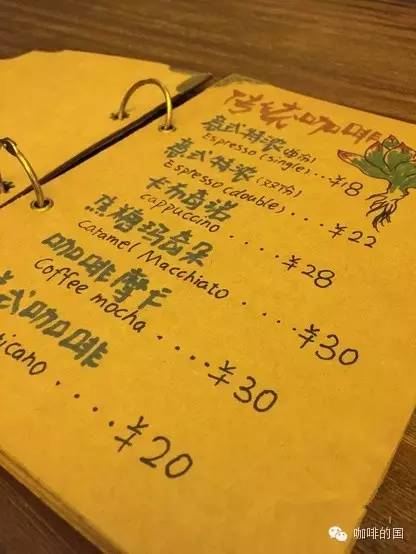 传统咖啡
意式特浓(单份)
Espresso (single)...¥18
意式特浓(双份)
Espresso (double)....¥22
卡布奇诺
cappuccino....¥28
焦糖玛奇朵
Caramel Macchiato....¥30
咖啡摩卡
Coffee mocha....¥30
式咖啡
ricano....¥20
咖啡的国